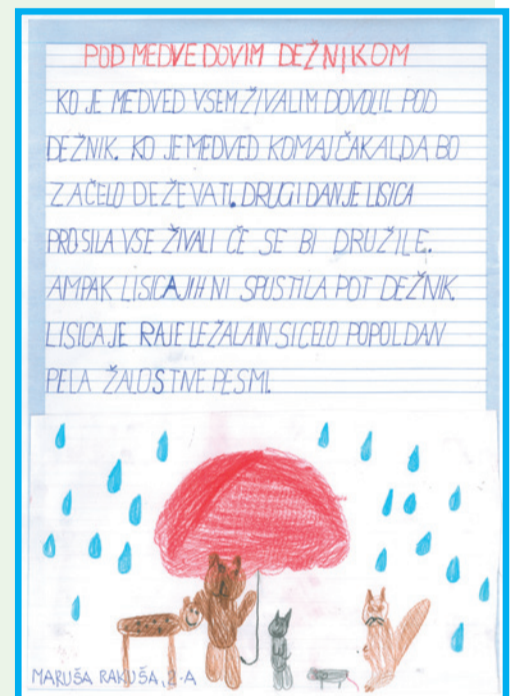 POD MEDVEDOVIM DEŽNIKOM
KO JE MEDVED VSEM ŽIVALIM DOVOLIL POD
DEŽNIK. KO JE MEDVED KOMAJ ČAKAL DA BO
ZAČELO DEŽEVATI. DRUGI DAN JE LISICA
PROSILA VSE ŽIVALI ČE SE BI DRUŽILE.
AMPAK LISICA JIH NI SPUSTILA POT DEŽNIK.
LISICA JE RAJE LEŽALA IN SI CELO POPOLDAN
PELA ŽALOSTNE PESMI.
MARUŠA RAKUŠA, 2.A